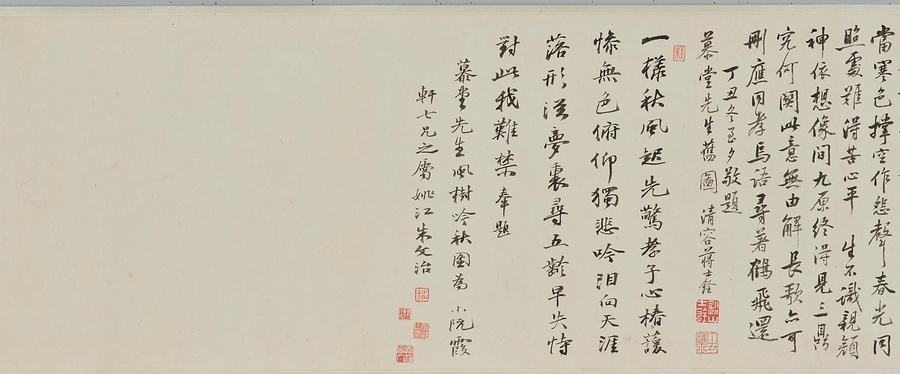 當寒色撑空作悲聲春光同
照處難得苦心平　生不識親顔
神依想像間九原終得見三
究何關此意無由解長歌亦可
刪應同孝烏語尋著鶴飛還
丁丑冬至夕敬題
慕堂先生舊圖　清容蔣士銓
一樣秋風起先驚孝子心椿萱
慘無色俯仰獨悲吟泪向天涯
落形從夢裏尋五齡早失恃
對此我難禁奉題
慕堂先生風樹吟秋圖為　小阮霞
軒七兄之屬姚江朱文治